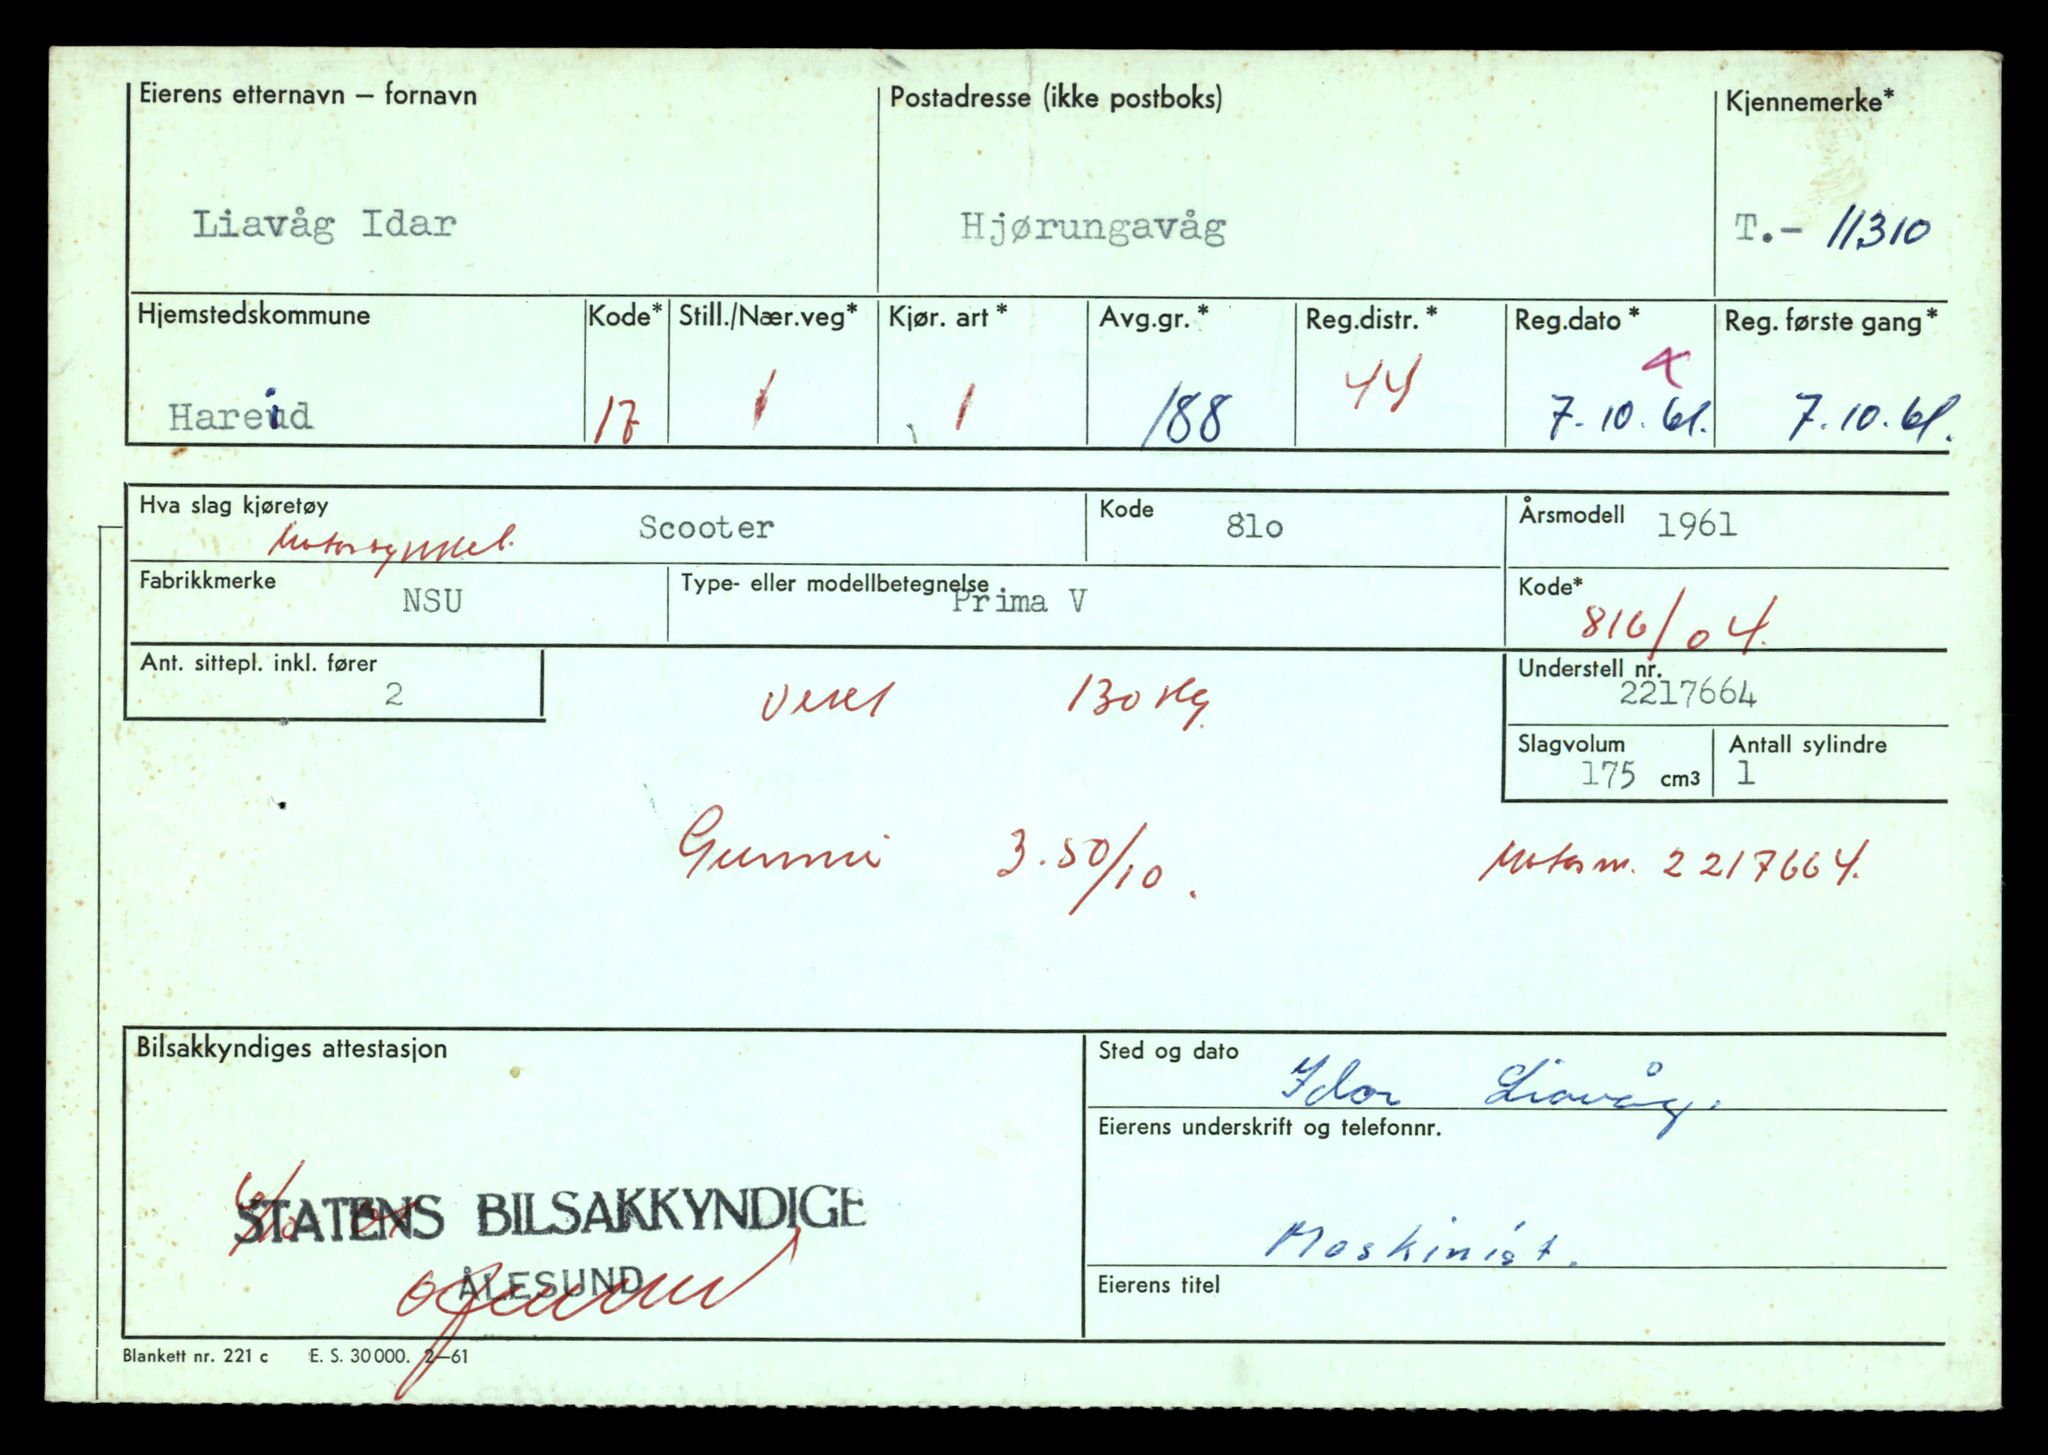 Eierens etternavn – fornavn Postadresse (ikke postboks) Kjennemerke*
Liavåg Idar Hjørungavåg T.- 11310
Hjemstedskommune Kode* Still./Nær.veg* Kjør. art* Avg.gr.* Reg.distr.* Reg.dato* Reg. første gang*
Hareid 17 1 1 188 44 7.10.61. 7.10.61.
Hva slag kjøretøy Motorsykkel. Scooter Kode 81o Årsmodell 1961
Fabrikkmerke NSU Type- eller modellbetegnelse Prima V Kode* 816/04.
Ant. sittepl. inkl. fører 2 Vekt 130 kg. Understell nr. 2217664
Slagvolum 175 cm3 Antall sylindre 1
Gummi 3.50/10. Motornr. 2217664.
Bilsakkyndiges attestasjon Sted og dato
Idar Liavåg.
Eierens underskrift og telefonnr.
STATENS BILSAKKYNDIGE
ÅLESUND
Maskinist.
Eierens titel
Blankett nr. 221 c E. S. 30 000. 2–61